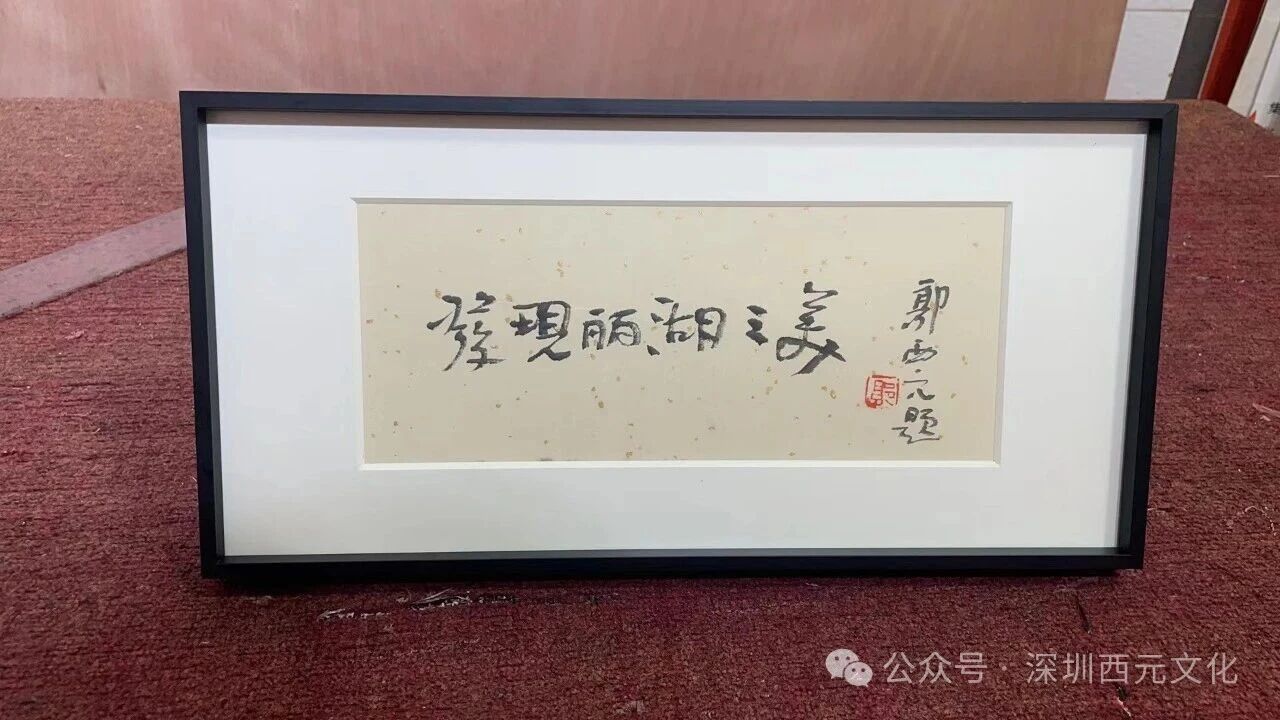 發現丽湖之美
郭西元题
公众号·深圳西元文化